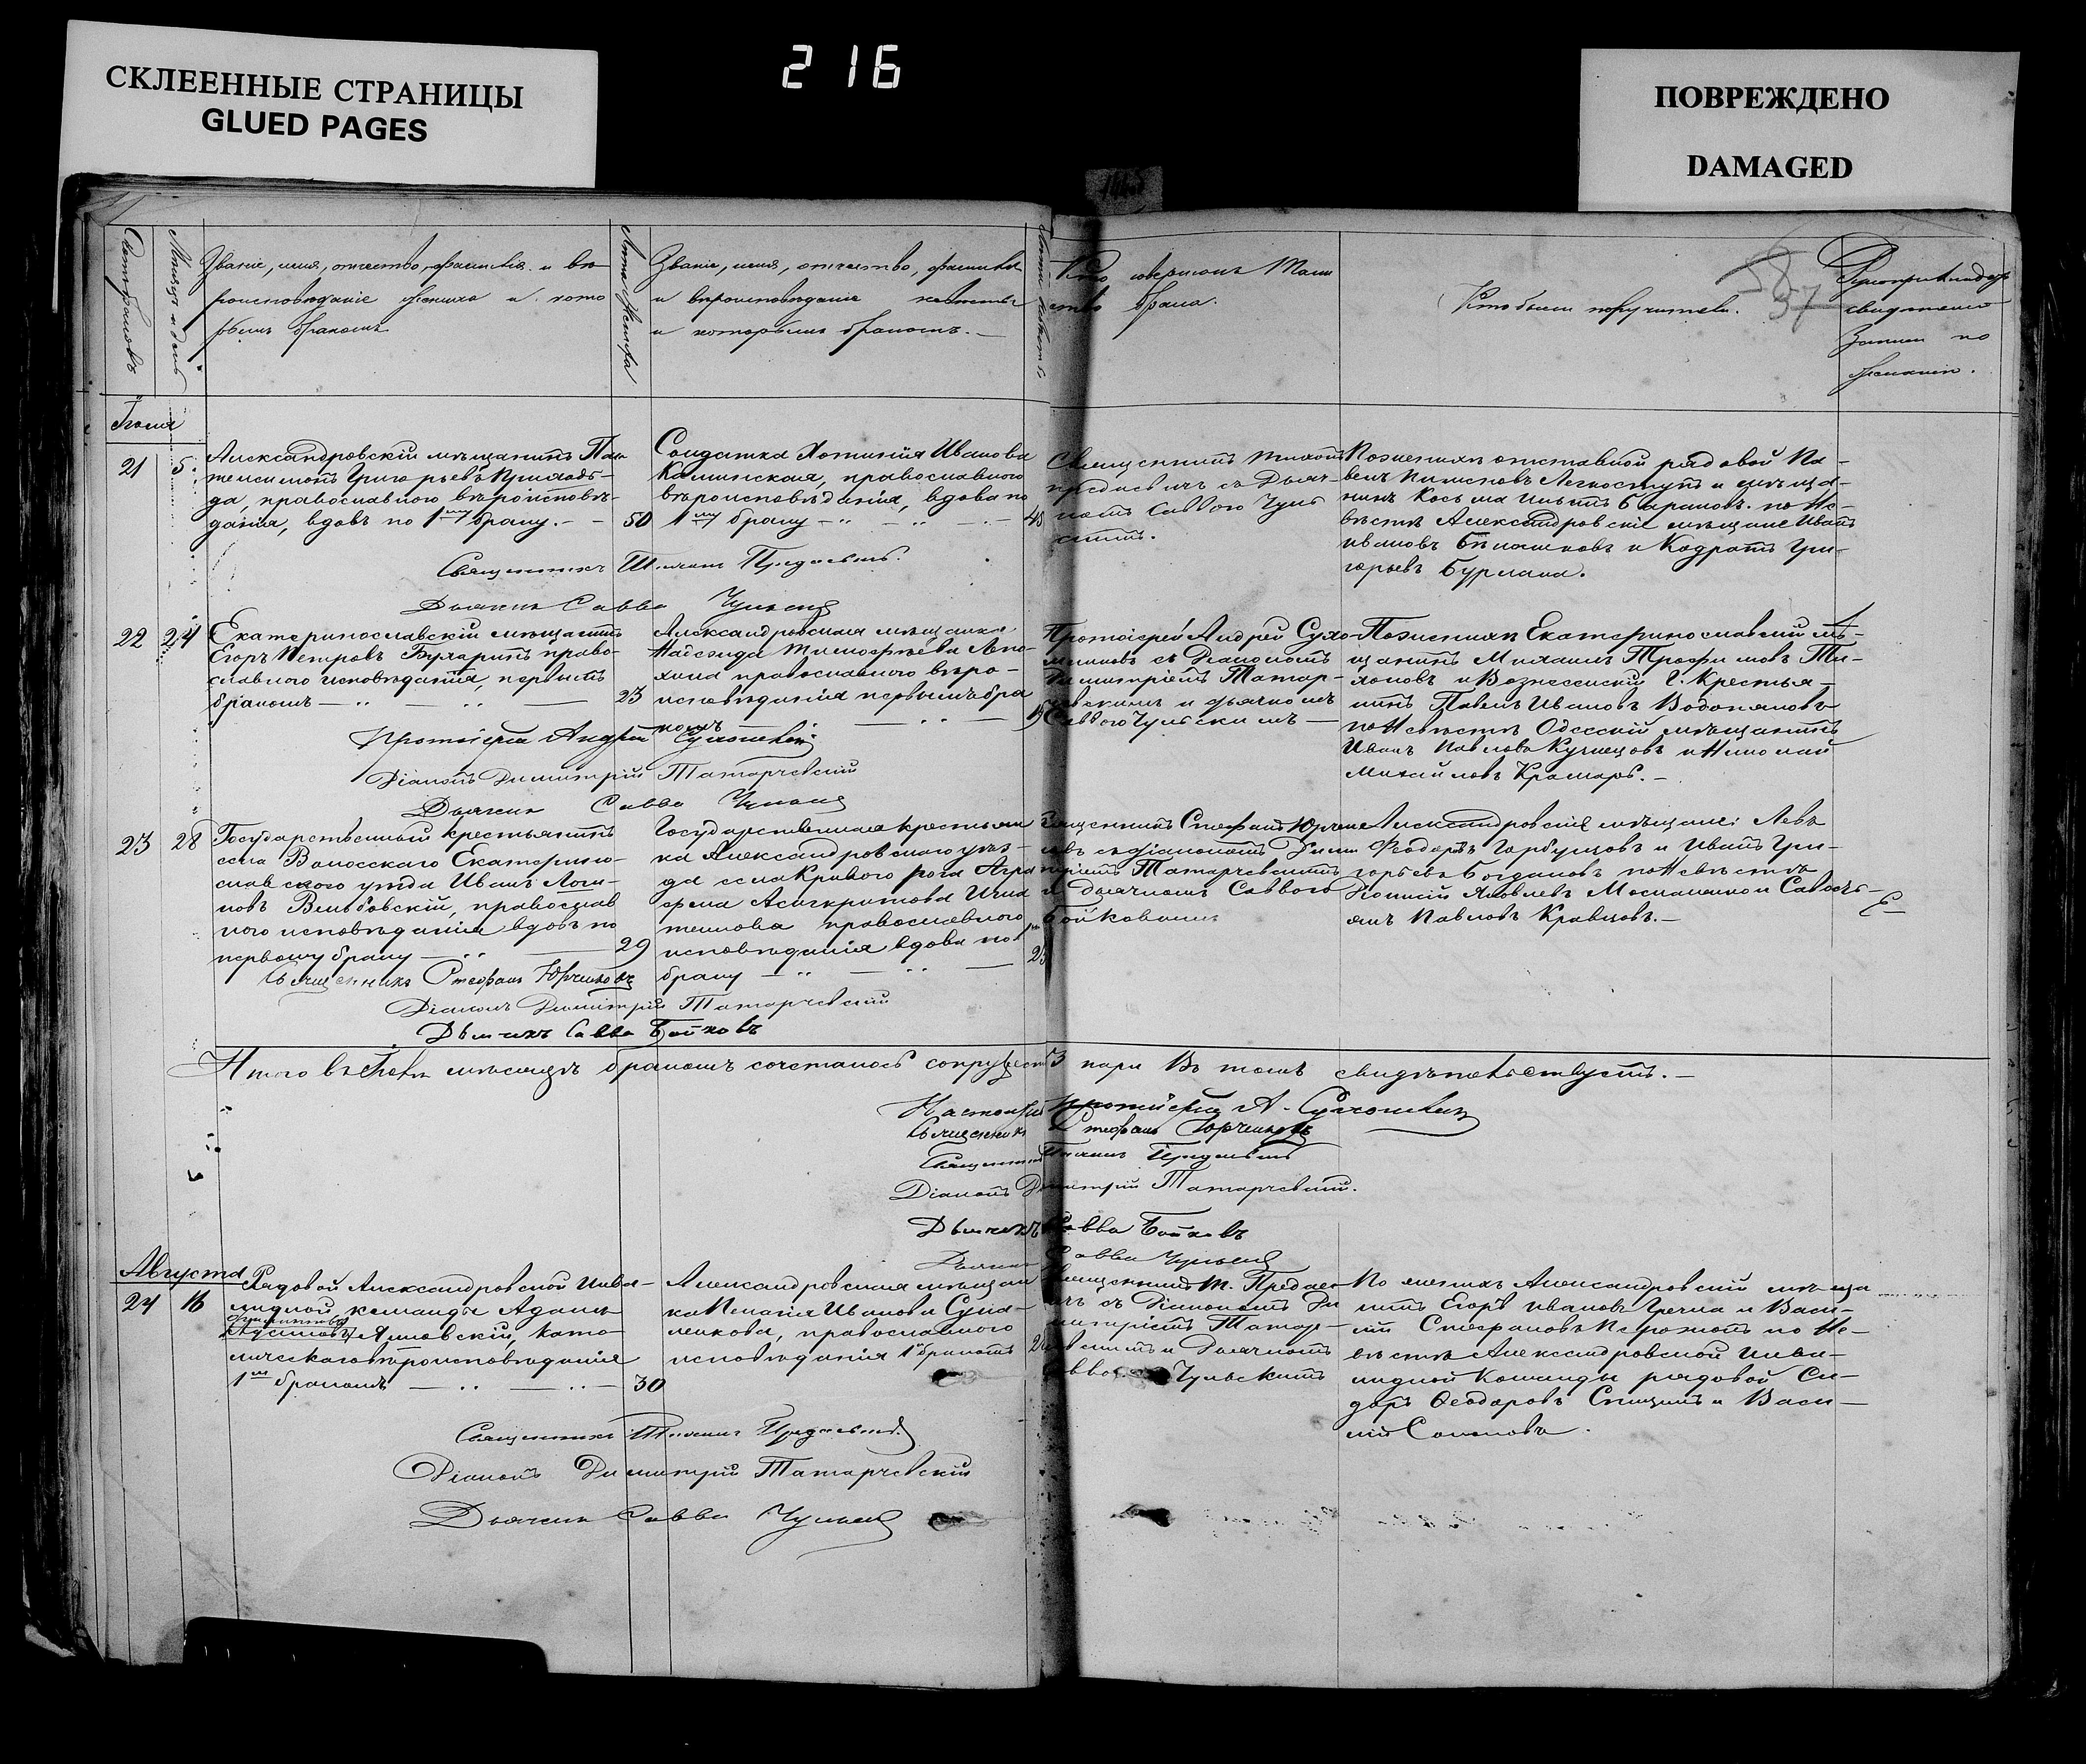 СКЛЕЕННЫЕ СТРАНИЦЫ
GLUED PAGES
216
ПОВРЕЖДЕНО
DAMAGED
Счетъ браковъ
Мѣсяцъ и день
Званіе, имя, отчество, фамилія и вѣ
роисповѣданіе жениха и кото
рымъ бракомъ
Лѣта Жениха
Званіе, имя, отчество, фамилія
и вѣроисповѣданіе невесты
и которымъ бракомъ. —
Лѣта невесты
Кто совершалъ Таин
ство брака.
Кто были поручители.
57
свидѣтелей
записи по
желанію.
Іюля
21
5
Александровскій мѣщанинъ Пан
телеимонъ Григорьевъ
да, православного вѣроисповѣ-
данія, вдовъ по 1му браку. —
50
Солдатка Хотинія Иванова
Калинская, православного
вѣроисповѣданія, вдова по
1му браку — " — " —
45
Священникъ Тихонъ
съ Дьяч-
комъ Саввою Чуль
скимъ.
По женихѣ отставной рядовой Па-
велъ Пименовъ Легкоступъ и мѣща-
нинъ Косьма Ильинъ Барановъ. по Не-
вѣстѣ Александровскіе мѣщане Иванъ
Ивановъ и Кодратъ Гри-
горьевъ Бурлака.
Священникъ Тихонъ
Дьячекъ Савва Чульскій
22
24
Екатеринославскій мѣщанинъ
Егоръ Петровъ Бухаринъ право-
славного исповѣданія, первымъ
бракомъ — " — " —
23
Александровская мѣщанка
Надежда Тимофѣева
православного вѣро-
исповѣданія первымъ бра
комъ — " —
19
Протоіерей Андрей Сухо-
съ Діакономъ
Димитріемъ Татар-
чевскимъ и дьячкомъ
Саввою Чульскимъ —
По женихѣ Екатеринославскій мѣ-
щанинъ Михаилъ Трофимовъ Ти-
хоновъ и Вознесенскій Г. Крестья-
нинъ Павелъ Ивановъ Водопяновъ
по Невѣстѣ Одесскій мѣщанинъ
Иванъ Павловъ Кузнецовъ и Николай
Михайловъ Крамарь. —
Протоіерей Андрей
Діаконъ Димитрій Татарчевскій
Дьячекъ Савва Чульскій
23
28
Государственный крестьянинъ
села Волосскаго Екатерино-
славского уѣзда Иванъ Логи-
новъ Вельбовскій, православ
ного исповѣданія вдовъ по
первому браку — " —
29
Государственная крестьян
ка Александровского уѣз-
да села Кривого рога Агра
фена Асинкритова Игна
тенкова православного
исповѣданія вдова по 1му
браку — " — " —
25
Священникъ Стефанъ Юрченк
овъ съ діакономъ Дими
тріемъ Татарчевскимъ
и дьячкомъ Саввою
Бойковымъ
Александровскіе мѣщане: Левъ
Феодоровъ Горбунцовъ и Иванъ Гри-
горьевъ Богдановъ по Невѣстѣ
Яковлевъ и Савость-
янъ Павловъ Кравцовъ. —
Священникъ Стефанъ Юрченковъ
Діаконъ Димитрій Татарчевскій
Дьячекъ Савва Бойковъ
Итого въ Іюлѣ мѣсяцѣ бракомъ сочеталось супружеств 3 пары Въ томъ свидѣтельствуетъ. —
Настоятель протоіерей А.
Священникъ Стефанъ Юрченковъ
Священникъ Тихонъ
Діаконъ Димитрій Татарчевскій.
Дьячекъ Савва Бойковъ
Дьячекъ Савва Чульскій
Августа
24
16
Рядовой Александровской Инва-
лидной команды Адамъ
Ялловскій, като-
лическаго вѣроисповѣданія
1мъ бракомъ — " — " —
30
Александровская мѣщан
ка Пелагія Иванова
православного
исповѣданія 1мъ бракомъ
Священникъ Т.
съ Діакономъ Ди
митріемъ Татар-
чевскимъ и Дьячкомъ
Саввою Чульскимъ
По женихѣ Александровскій мѣща
нинъ Егоръ Ивановъ Гречка и Васи-
лій Стефановъ по Не-
вѣстѣ Александровской Инва-
лидной Команды рядовой Си-
доръ Феодоровъ Спицинъ и Васи-
лій
Священникъ Тихонъ
Діаконъ Димитрій Татарчевскій
Дьячекъ Савва Чульскій